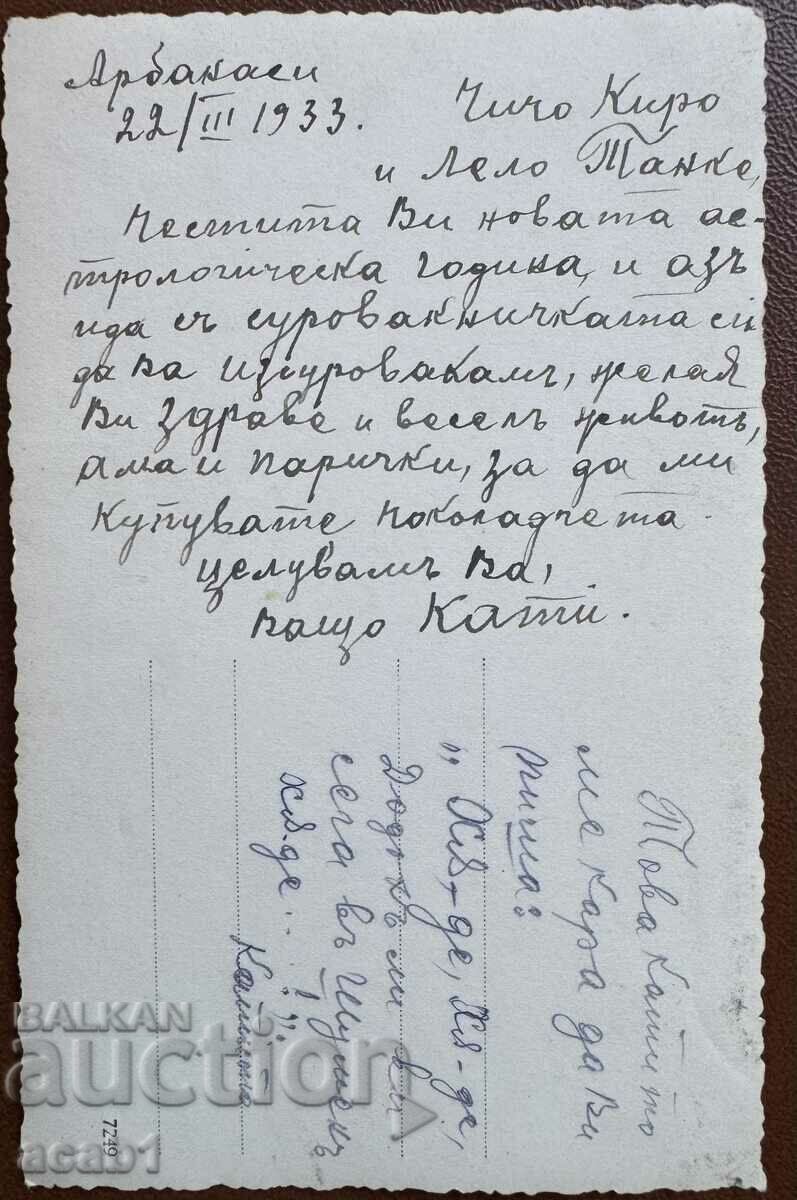 Арбанаси
22/III 1933.
Чичо Киро
и Лело Танке,
Честита Ви новата ас-
трологическа година, и азъ
ида съ сурваканичката си
да Ва изсуровакамъ, желая
Ви здраве и веселъ животъ,
ама и парички, за да ми
купувате чоколадчета.
Целувамъ Ва,
Ващо Кати.
Това Катито
ме кара да Ви
пиша:
"Хя-де, хя-де,
Додохъ си
сега въ Шуменъ
хя-де.. !"
Катито
7249
BALKAN
auction
acab1